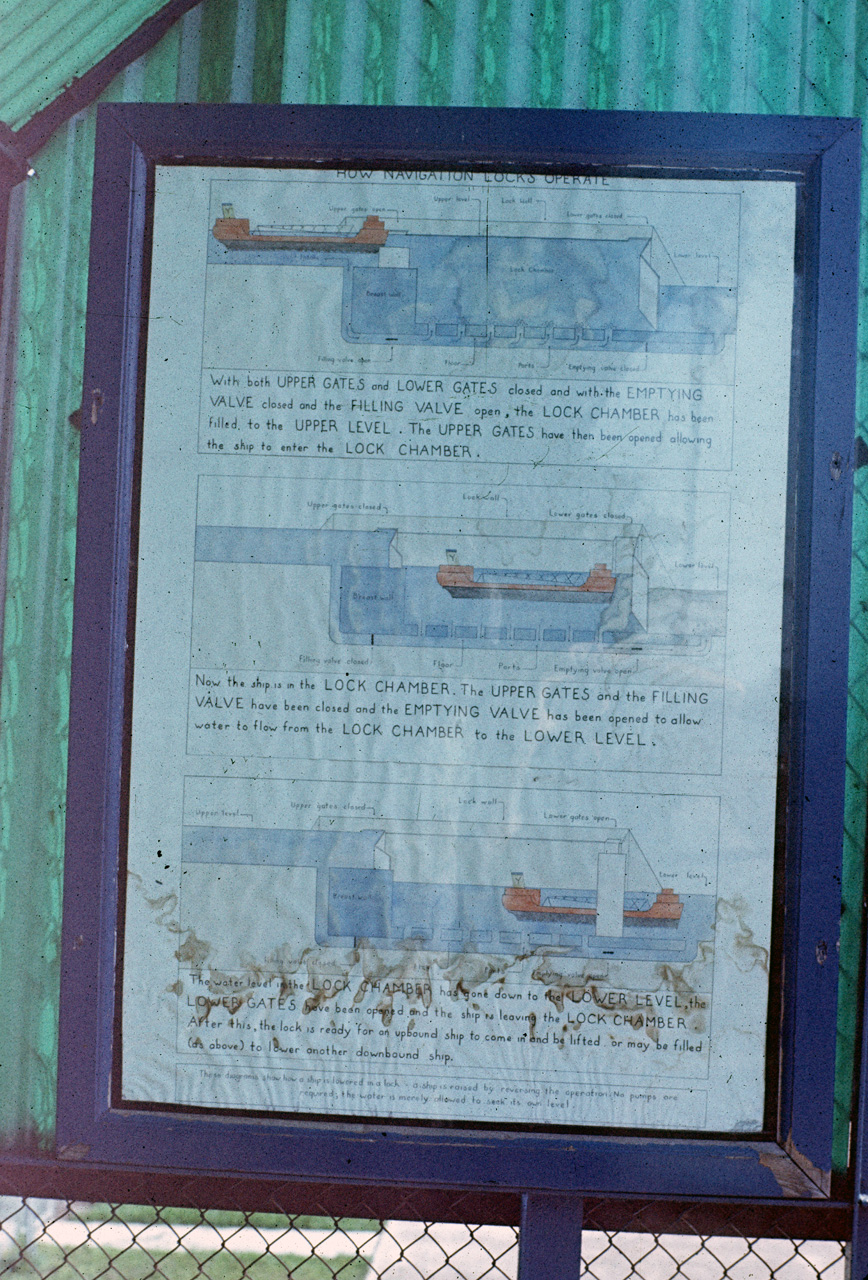 HOW NAVIGATION LOCKS OPERATE
Upper gates open
Upper level
Lock Wall
Lower gates closed
Lower level
Lock Chamber
Breast wall
Filling valve open
Floor
Ports
Emptying valve closed
With both UPPER GATES and LOWER GATES closed and with the EMPTYING
VALVE closed and the FILLING VALVE open, the LOCK CHAMBER has been
filled, to the UPPER LEVEL. The UPPER GATES have then been opened allowing
the ship to enter the LOCK CHAMBER.
Upper gates closed
Lock wall
Lower gates closed
Lower level
Breast wall
Filling valve closed
Floor
Ports
Emptying valve open
Now the ship is in the LOCK CHAMBER. The UPPER GATES and the FILLING
VALVE have been closed and the EMPTYING VALVE has been opened to allow
water to flow from the LOCK CHAMBER to the LOWER LEVEL.
Upper level
Upper gates closed
Lock wall
Lower gates open
Lower level
Breast wall
The water level in the LOCK CHAMBER has gone down to the LOWER LEVEL, the
LOWER GATES have been opened and the ship is leaving the LOCK CHAMBER.
After this, the lock is ready for an upbound ship to come in and be lifted or may be filled
(as above) to lower another downbound ship.
These diagrams show how a ship is lowered in a lock - a ship is raised by reversing the operation. No pumps are
required; the water is merely allowed to seek its own level.